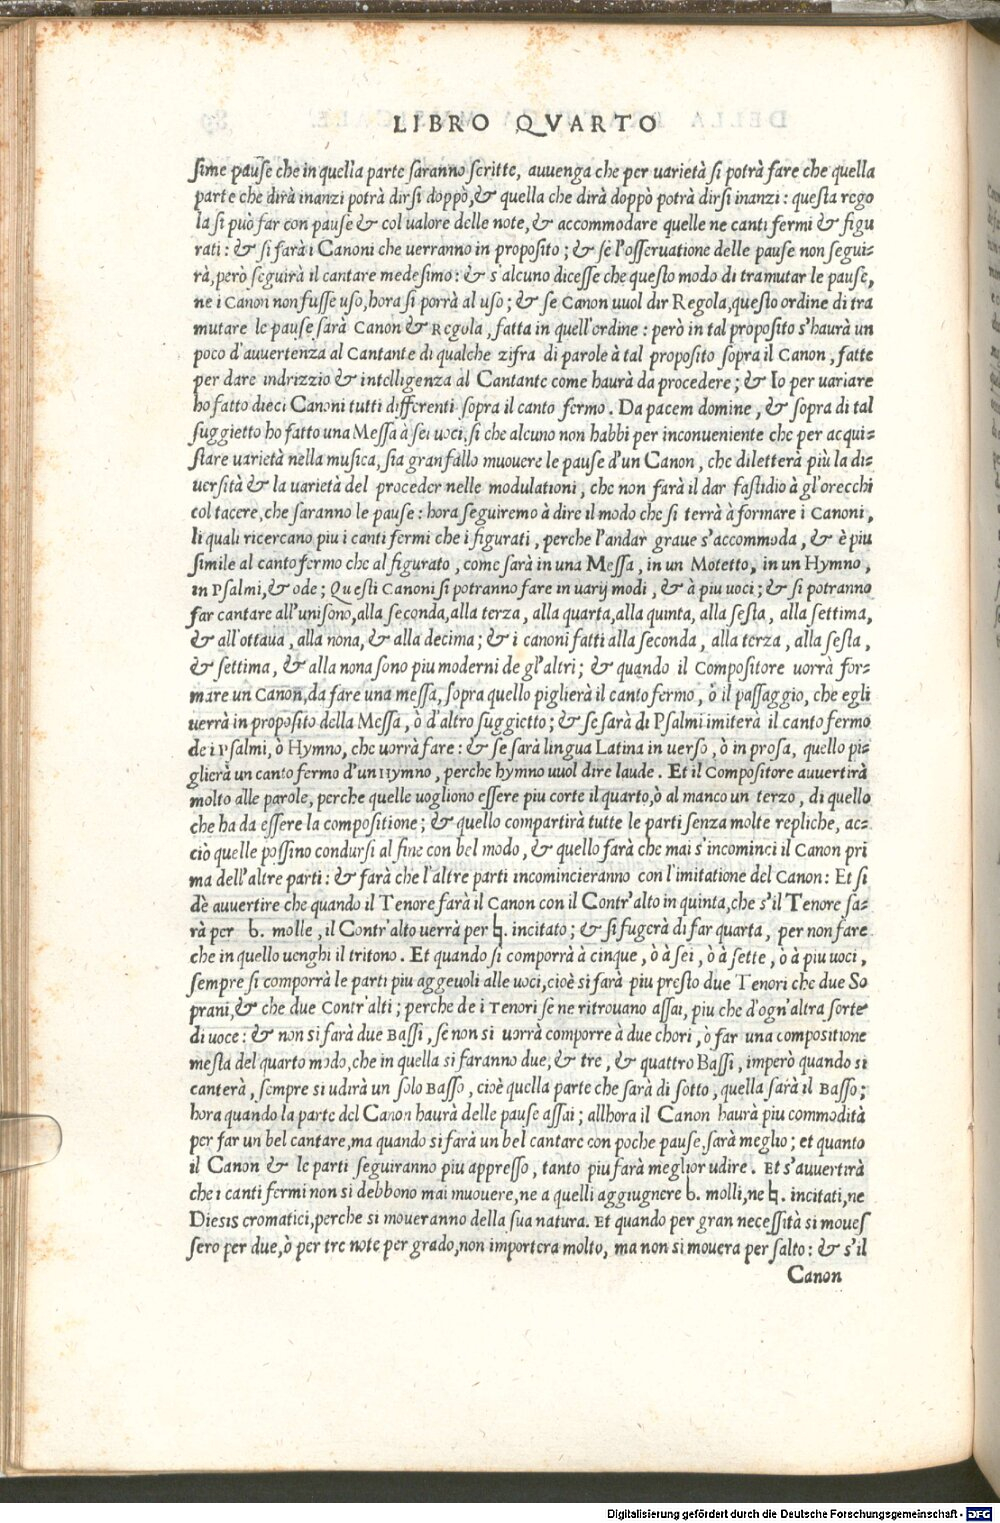 LIBRO QVARTO
sime pause che in quella parte saranno scritte, auuenga che per uarietà si potrà fare che quella
parte che dirà inanzi potrà dirsi doppò, & quella che dirà doppò potrà dirsi inanzi : questa rego
la si può far con pause & col ualore delle note, & accommodare quelle ne canti fermi & figu
rati : & si farà i Canoni che uerranno in proposito ; & se l'osseruatione delle pause non segui=
rà, però seguirà il cantare medesimo : & s'alcuno dicesse che questo modo di tramutar le pause,
ne i Canon non fusse uso, hora si porrà al uso ; & se Canon uuol dir Regola, questo ordine di tra
mutare le pause sarà Canon & Regola , fatta in quell'ordine : però in tal proposito s'haurà un
poco d'auuertenza al Cantante di qualche zifra di parole à tal proposito sopra il Canon , fatte
per dare indrizzio & intelligenza al Cantante come haurà da procedere ; & Io per uariare
ho fatto dieci Canoni tutti differenti sopra il canto fermo . Da pacem domine , & sopra di tal
suggietto ho fatto una Messa à sei uoci, si che alcuno non habbi per inconueniente che per acqui=
stare uarietà nella musica, sia gran fallo muouere le pause d'un Canon , che diletterà più la di=
uersità & la uarietà del proceder nelle modulationi , che non farà il dar fastidio à gl'orecchi
col tacere, che saranno le pause : hora seguiremo à dire il modo che si terrà à formare i Canoni ,
li quali ricercano piu i canti fermi che i figurati , perche l'andar graue s'accommoda , & è piu
simile al canto fermo che al figurato , come sarà in una Messa , in un Motetto, in un Hymno ,
in Psalmi, & ode ; Questi Canoni si potranno fare in uarij modi , & à piu uoci ; & si potranno
far cantare all'unisono, alla seconda, alla terza , alla quarta, alla quinta, alla sesta , alla settima,
& all'ottaua , alla nona, & alla decima ; & i canoni fatti alla seconda , alla terza , alla sesta ,
& settima , & alla nona sono piu moderni de gl'altri ; & quando il Compositore uorrà for=
mare un Canon, da fare una messa, sopra quello piglierà il canto fermo , ò il passaggio, che egli
uerrà in proposito della Messa , ò d'altro suggietto ; & se sarà di Psalmi imiterà il canto fermo
de i Psalmi, ò Hymno, che uorrà fare : & se sarà lingua Latina in uerso , ò in prosa, quello pi=
glierà un canto fermo d'un Hymno , perche hymno uuol dire laude . Et il Compositore auuertirà
molto alle parole, perche quelle uogliono essere piu corte il quarto, ò al manco un terzo , di quello
che ha da essere la compositione ; & quello compartirà tutte le parti senza molte repliche, ac=
ciò quelle possino condursi al fine con bel modo , & quello farà che mai s'incominci il Canon pri
ma dell'altre parti : & farà che l'altre parti incomincieranno con l'imitatione del Canon : Et si
dè auuertire che quando il Tenore farà il Canon con il Contr'alto in quinta, che s'il Tenore sa=
rà per ♭. molle , il Contr'alto uerrà per ♮. incitato ; & si fugerà di far quarta , per non fare
che in quello uenghi il tritono . Et quando si comporrà à cinque , ò à sei , ò à sette , ò à piu uoci ,
sempre si comporrà le parti piu aggeuoli alle uoci, cioè si farà piu presto due Tenori che due So
prani, & che due Contr'alti ; perche de i Tenori se ne ritrouano assai, piu che d'ogn'altra sorte
di uoce : & non si farà due Bassi , se non si uorrà comporre à due chori , ò far una compositione
mesta del quarto modo, che in quella si faranno due, & tre , & quattro Bassi , imperò quando si
canterà , sempre si udirà un solo Basso , cioè quella parte che sarà di sotto , quella sarà il Basso ;
hora quando la parte del Canon haurà delle pause assai ; allhora il Canon haurà piu commodità
per far un bel cantare, ma quando si farà un bel cantare con poche pause, sarà meglio ; et quanto
il Canon & le parti seguiranno piu appresso , tanto piu farà meglior udire . Et s'auuertirà
che i canti fermi non si debbono mai muouere, ne a quelli aggiugnere ♭. molli, ne ♮. incitati, ne
Diesis cromatici, perche si moueranno della sua natura. Et quando per gran necessità si moues
sero per due, ò per tre note per grado, non importera molto, ma non si mouera per salto : & s'il
Canon
Digitalisierung gefördert durch die Deutsche Forschungsgemeinschaft - DFG